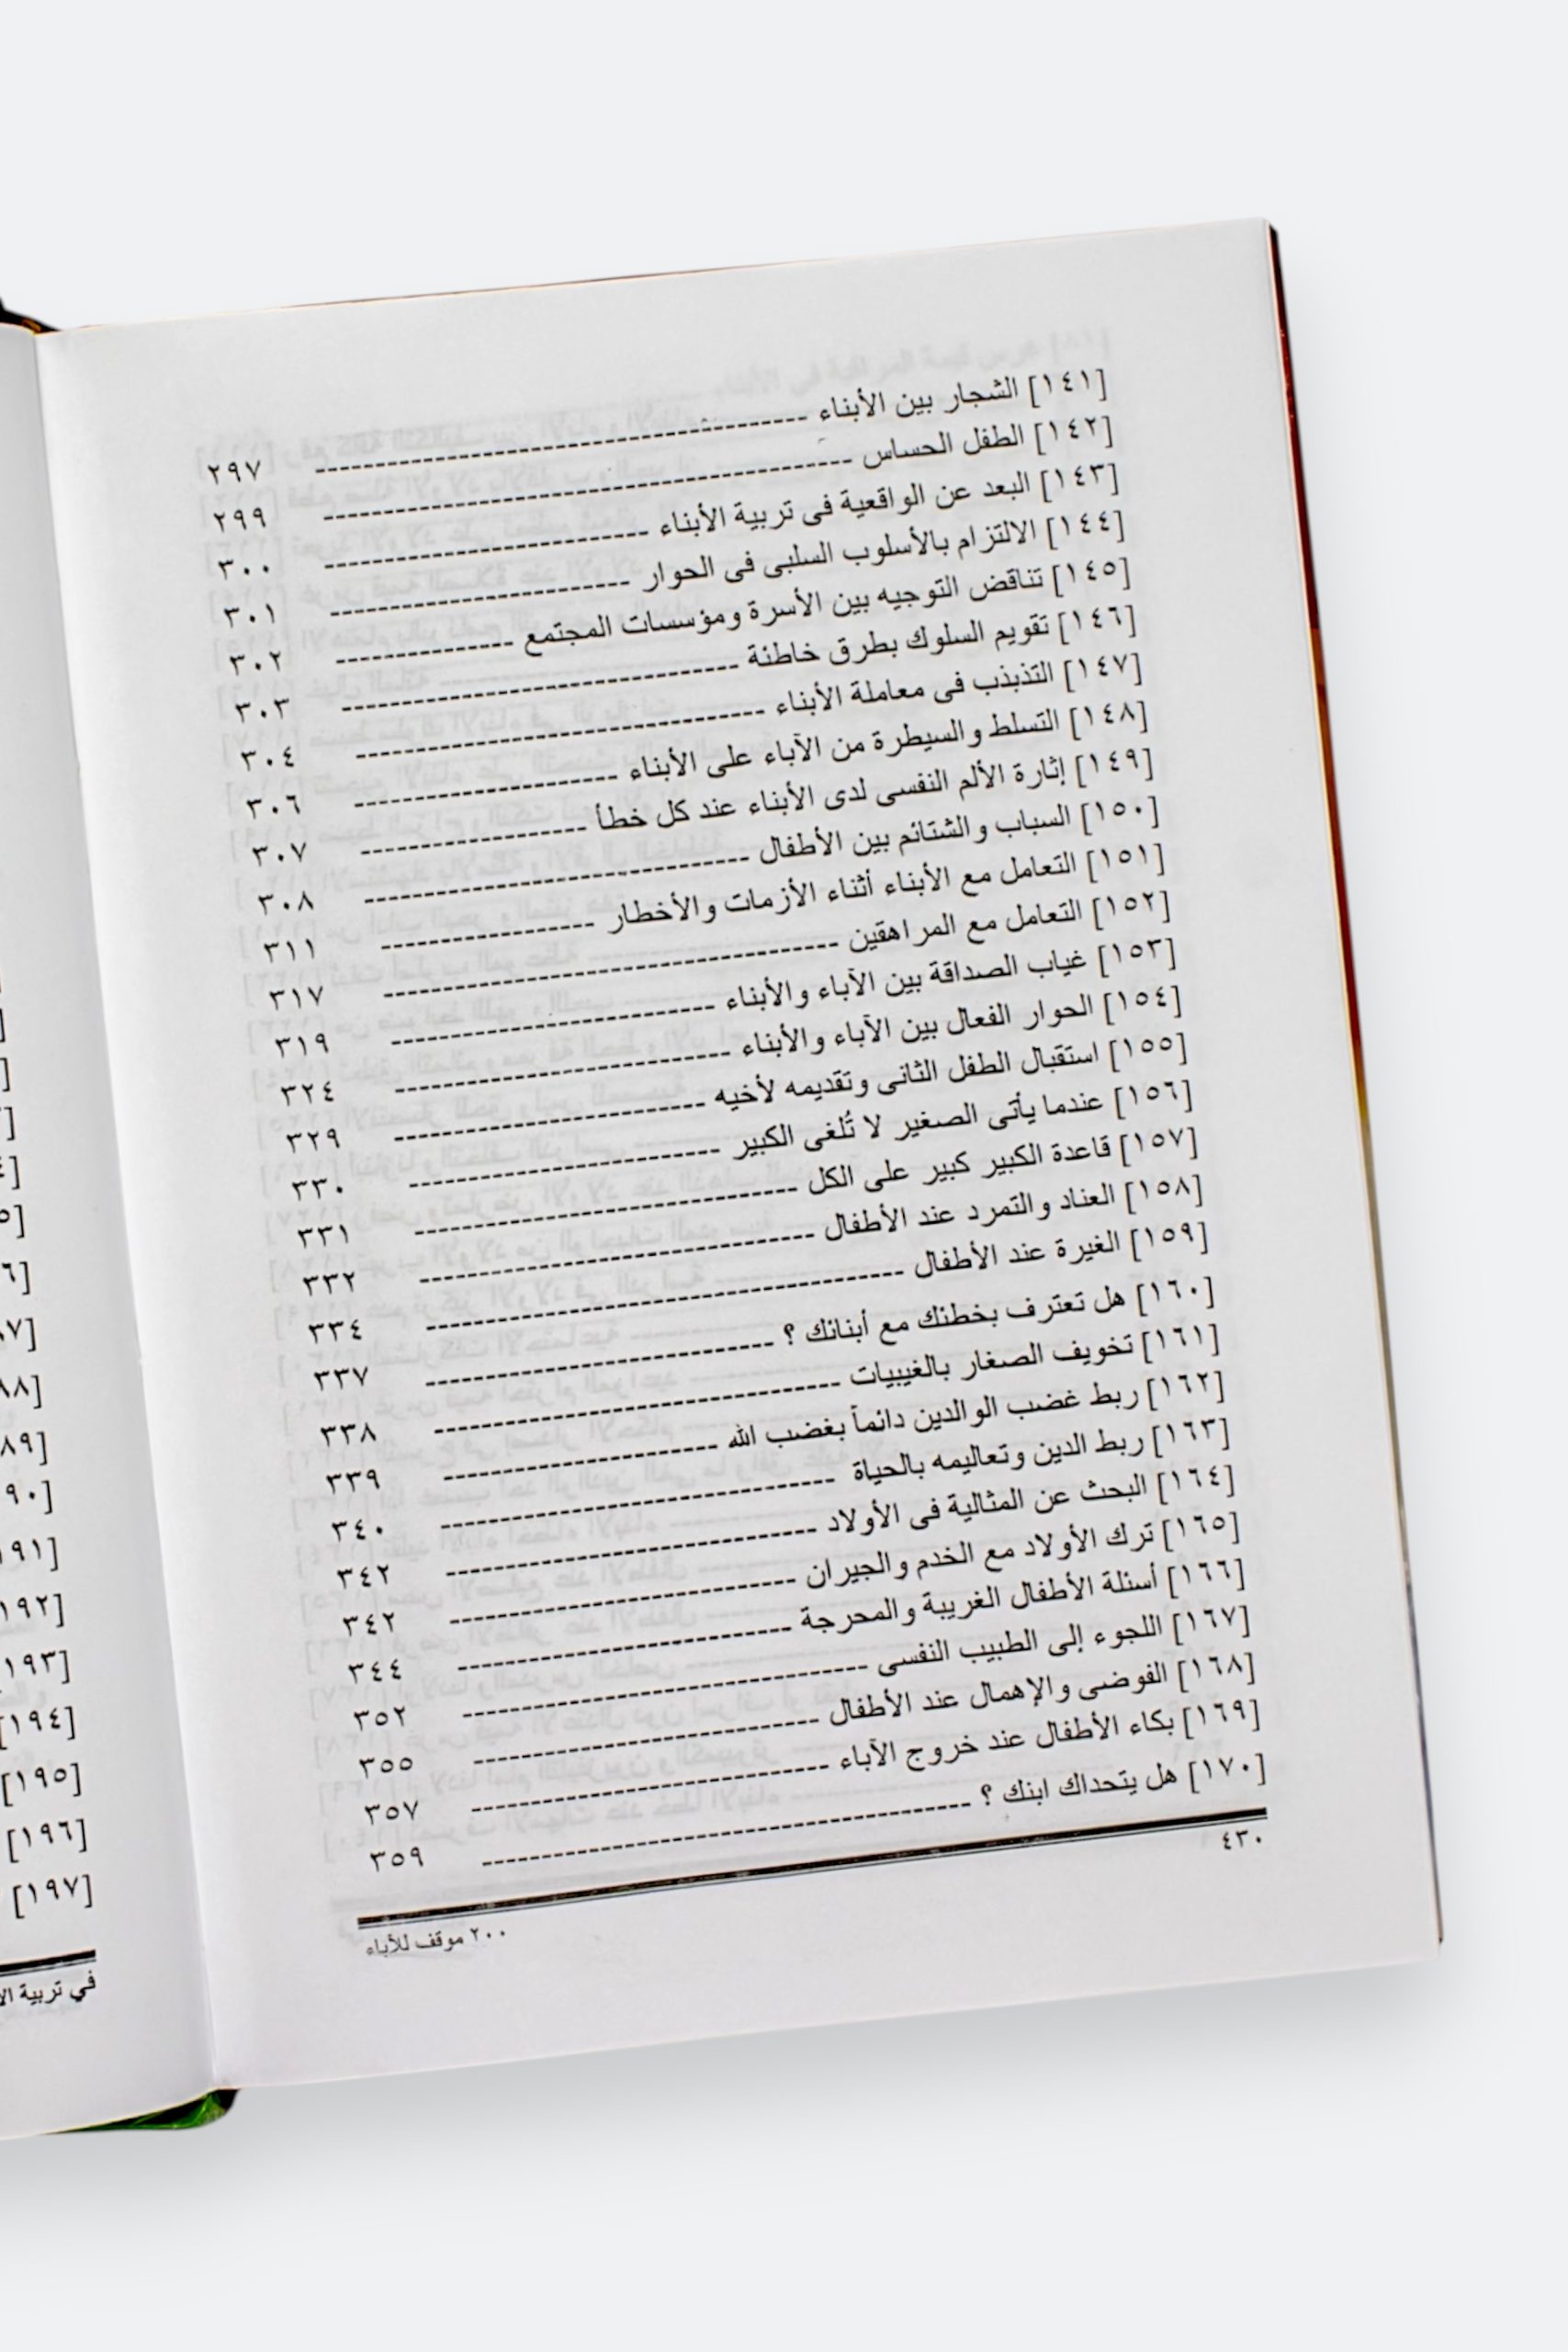 [١٤١] الشجار بين الأبناء ---------- ٢٩٧
[١٤٢] الطفل الحساس ---------- ٢٩٩
[١٤٣] البعد عن الواقعية فى تربية الأبناء ---------- ٣٠٠
[١٤٤] الالتزام بالأسلوب السلبى فى الحوار ---------- ٣٠١
[١٤٥] تناقض التوجيه بين الأسرة ومؤسسات المجتمع ---------- ٣٠٢
[١٤٦] تقويم السلوك بطرق خاطئة ---------- ٣٠٣
[١٤٧] التذبذب فى معاملة الأبناء ---------- ٣٠٤
[١٤٨] التسلط والسيطرة من الآباء على الأبناء ---------- ٣٠٦
[١٤٩] إثارة الألم النفسى لدى الأبناء عند كل خطأ ---------- ٣٠٧
[١٥٠] السباب والشتائم بين الأطفال ---------- ٣٠٨
[١٥١] التعامل مع الأبناء أثناء الأزمات والأخطار ---------- ٣١١
[١٥٢] التعامل مع المراهقين ---------- ٣١٧
[١٥٣] غياب الصداقة بين الآباء والأبناء ---------- ٣١٩
[١٥٤] الحوار الفعال بين الآباء والأبناء ---------- ٣٢٤
[١٥٥] استقبال الطفل الثانى وتقديمه لأخيه ---------- ٣٢٩
[١٥٦] عندما يأتى الصغير لا تُلغى الكبير ---------- ٣٣٠
[١٥٧] قاعدة الكبير كبير على الكل ---------- ٣٣١
[١٥٨] العناد والتمرد عند الأطفال ---------- ٣٣٢
[١٥٩] الغيرة عند الأطفال ---------- ٣٣٤
[١٦٠] هل تعترف بخطئك مع أبنائك ؟ ---------- ٣٣٧
[١٦١] تخويف الصغار بالغيبيات ---------- ٣٣٨
[١٦٢] ربط غضب الوالدين دائماً بغضب الله ---------- ٣٣٩
[١٦٣] ربط الدين وتعاليمه بالحياة ---------- ٣٤٠
[١٦٤] البحث عن المثالية فى الأولاد ---------- ٣٤٢
[١٦٥] ترك الأولاد مع الخدم والجيران ---------- ٣٤٢
[١٦٦] أسئلة الأطفال الغريبة والمحرجة ---------- ٣٤٤
[١٦٧] اللجوء إلى الطبيب النفسى ---------- ٣٥٢
[١٦٨] الفوضى والإهمال عند الأطفال ---------- ٣٥٥
[١٦٩] بكاء الأطفال عند خروج الآباء ---------- ٣٥٧
[١٧٠] هل يتحداك ابنك ؟ ---------- ٣٥٩
٤٣٠
٢٠٠ موقف للأباء
[١٩٥]
[١٩٦]
[١٩٧]
في تربية